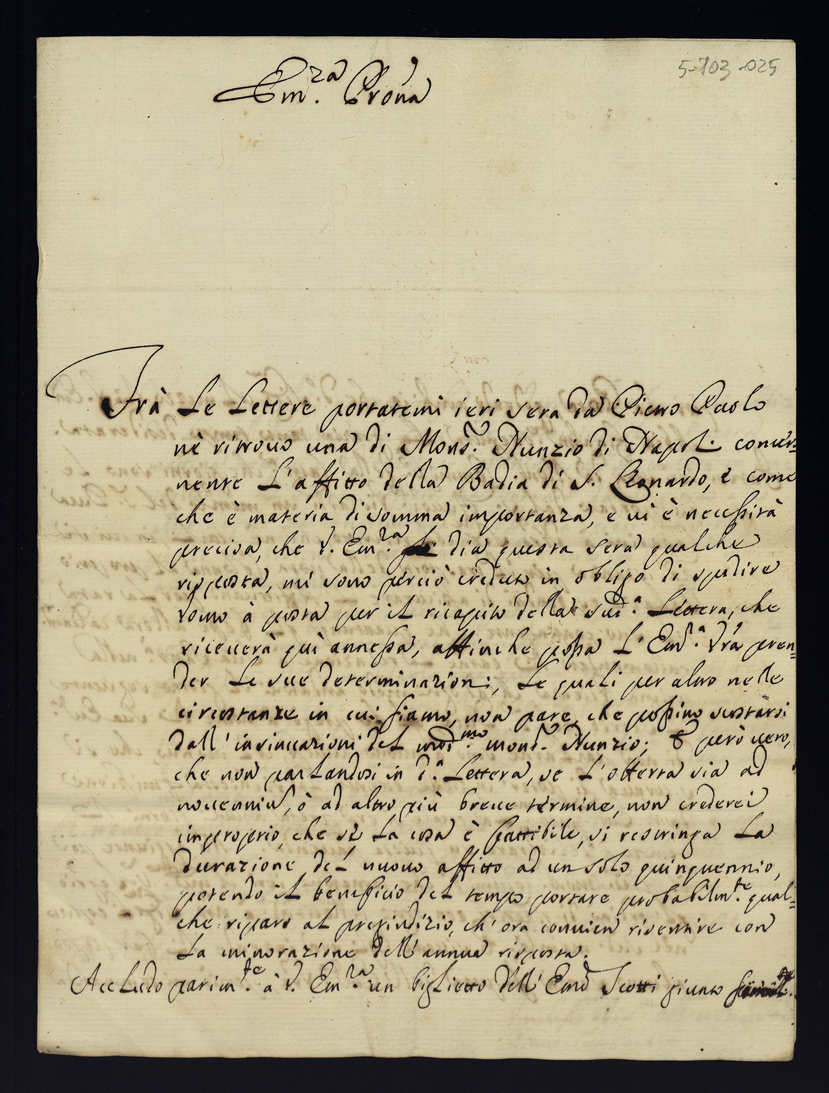 5-703-025
Em.za Prona
Frà Le Lettere portatemi ieri sera da Pietro Paolo
nè ritrovo una di Mons.r Nunzio di Napoli concer=
nente L'affitto della Badia di S. Leonardo, e come
che è materia di somma importanza, e vi è necessità
precisa, che V. Em.za dia questa sera qualche
risposta, mi sono perciò creduto in obligo di spedire
Uomo à posta per il ricapito della sud.a Lettera, che
riceverà quì annessa, affinche possa L'Em.a Vra pren=
der Le sue determinazioni, Le quali per altro nelle
circostanze in cui siamo, non pare, che possino scostarsi
dall'insinuazioni del med.mo mons.r Nunzio; È però vero,
che non parlandosi in d.a Lettera, se L'offerta sia ad
novennium, ò ad altro più breve termine, non crederei
improprio, che se La cosa è fattibile, si restringa La
durazione del nuovo affitto ad un solo quinquennio,
potendo il beneficio del tempo portare probabilm.te qual=
che riparo al pregiudizio, ch'ora convien risentire con
La minorazione dell'annua risposta.
Accludo parim.te à V. Em.za un biglietto dell'Em.o Scotti giunto